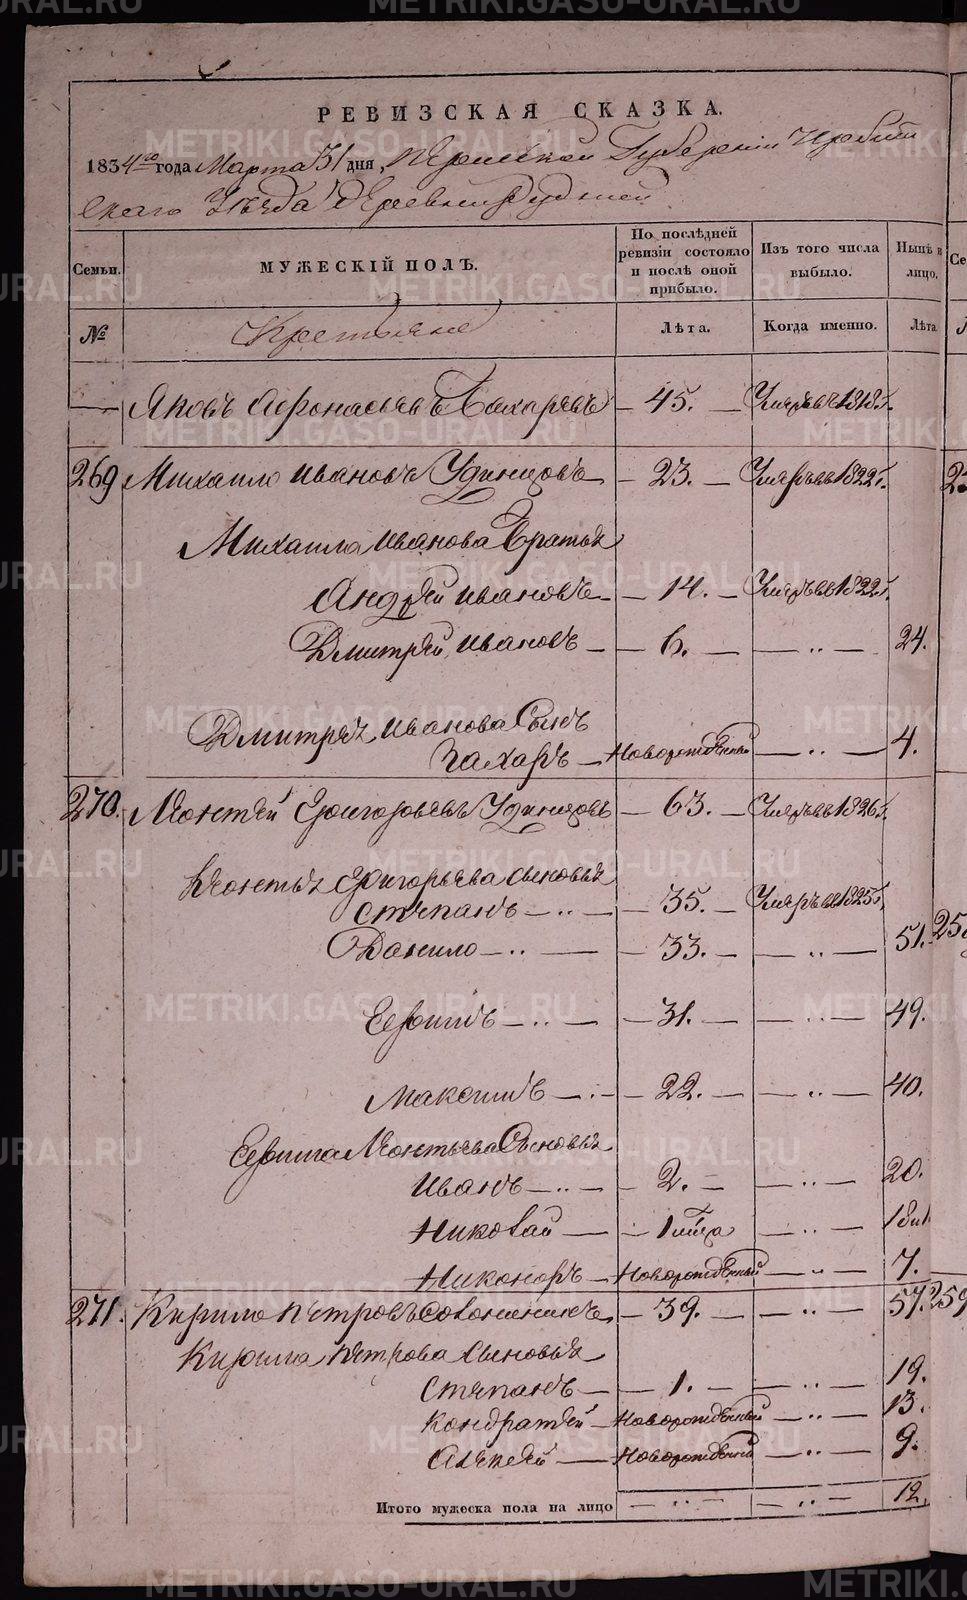 РЕВИЗСКАЯ СКАЗКА.
1834го года Марта 31 дня, Пермской Губернии Ирбит
скаго Уѣзда деревни Рудней
Семьи. МУЖЕСКІЙ ПОЛЪ. По послѣдней ревизіи состояло и послѣ оной прибыло. Изъ того числа выбыло. Нынѣ в лицо.
№ Крестьяне Лѣта. Когда именно. Лѣта.
Яковъ Афонасьевъ Бахаревъ — 45. — Умеръ въ 1818г.
269 Михаило Ивановъ Удинцовъ — 23. — Умеръ въ 1822г.
Михаила Иванова братья
Андрей Ивановъ — 14. — Умеръ въ 1822г.
Дмитрей Ивановъ — 6. — — „ — 24.
Дмитрея Иванова сынъ
Захаръ — Новорожденный — „ — 4.
270. Леонтей Григорьевъ Удинцовъ — 63. — Умеръ въ 1826г.
Леонтья Григорьева сыновья
Степанъ — „ — — 35. — Умеръ въ 1825г.
Данило — „ — — 33. — — „ — 51.
Ефимъ — „ — — 31. — — „ — 49.
Максимъ — „ — — 22. — — „ — 40.
Ефима Леонтьева сыновья
Иванъ — „ — — 2. — — „ — 20.
Николай — — 1 — „ —
Никоноръ — Новорожденный — „ — 7.
271. Кирило Петровъ — 39. — — „ — 57.
Кирила Петрова сыновья
Степанъ — — 1. — — „ — 19.
Кондратей — Новорожденный — „ — 13.
Алексей — Новорожденный — „ — 9.
Итого мужеска пола на лицо — „ — — „ — 12.
METRIKI.GASO-URAL.RU